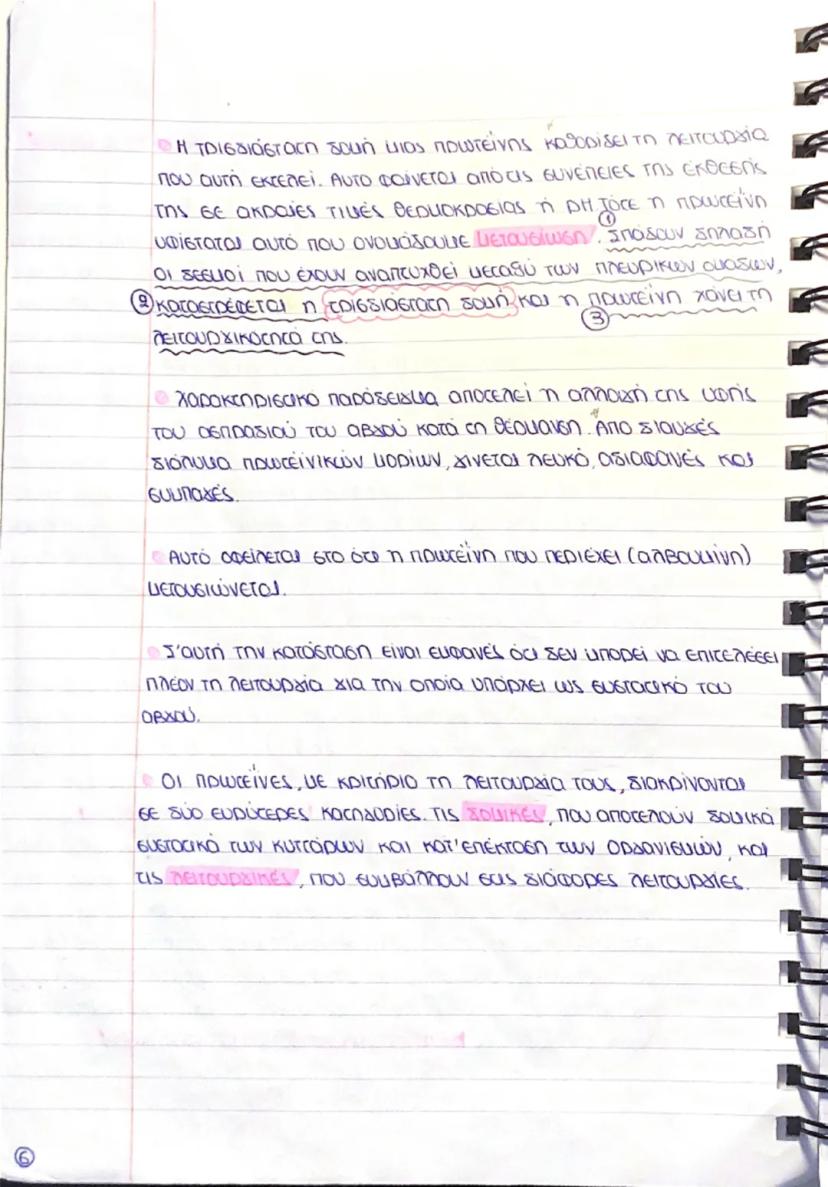 • Η τρισδιάσταση δομή μιας πρωτεΐνης καθορίζει τη λειτουργία
που αυτή εκτελεί. Αυτό φαίνεται από τις συνέπειες της έκθεσής
της σε ακραίες τιμές θερμοκρασίας ή pH. Τότε η πρωτεΐνη
υφίσταται αυτό που ονομάζουμε μετουσίωση. ① Σπάζουν δηλαδή
οι δεσμοί που έχουν αναπτυχθεί μεταξύ των πλευρικών ομάδων,
② καταστρέφεται η τρισδιάσταση δομή και η πρωτεΐνη χάνει τη
③
λειτουργικότητά της.
• Χαρακτηριστικό παράδειγμα αποτελεί η αλλαγή της υφής
του ασπραδιού του αβγού κατά τη θέρμανση. Από διαυγές
διάλυμα πρωτεϊνικών μορίων, γίνεται λευκό, αδιαφανές και
συμπαγές.
• Αυτό οφείλεται στο ότι η πρωτεΐνη που περιέχει (αλβουμίνη)
μετουσιώνεται.
• Σ'αυτή την κατάσταση είναι εμφανές ότι δεν μπορεί να επιτελέσει
πλέον τη λειτουργία για την οποία υπάρχει ως συστατικό του
αβγού.
• Οι πρωτεΐνες, με κριτήριο τη λειτουργία τους, διακρίνονται
σε δύο ευρύτερες κατηγορίες. Τις δομικές, που αποτελούν δομικά
συστατικά των κυττάρων και κατ'επέκταση των οργανισμών, και
τις λειτουργικές, που συμβάλλουν στις διάφορες λειτουργίες.
⑥